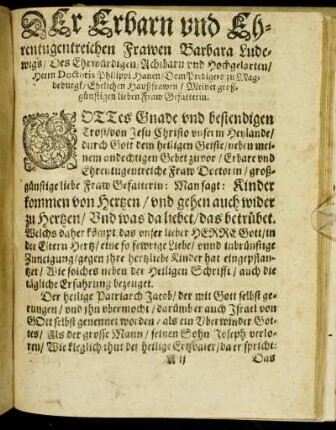 DEr Erbarn vnd Eh-
rentugentreichen Frawen Barbara Lude-
wigs/ Des Ehrwürdigen/ Achtbarn vnd Hochgelarten/
Herrn Doctoris Philippi Hanen/ Dom Predigers zu Mag-
deburgk/ Ehelichen Haußfrawen/ Meiner groß-
günstigen lieben Fraw Gefatterin.
GOTTes Gnade vnd bestendigen
Trost/ von Jesu Christo vnserm Heylande/
durch Gott dem heiligen Geiste/ neben mei-
nem andechtigen Gebet zuvor/ Erbare vnd
Ehrentugentreiche Fraw Doctorin/ groß-
günstige liebe Fraw Gefatterin: Man sagt: Kinder
kommen von Hertzen/ vnd gehen auch wider
zu Hertzen/ Vnd was da liebet/ das betrübet.
Welchs daher kömpt/ das vnser lieber HERRE Gott/ in
der Eltern Hertz/ eine so fewrige Liebe/ vnnd inbrünstige
Zuneigung/ gegen jhre hertzliebe Kinder hat eingepflan-
tzet/ Wie solches neben der Heiligen Schrifft/ auch die
tägliche Erfahrung bezeuget.
Der heilige Patriarch Jacob/ der mit Gott selbst ge-
rungen/ vnd jhn vbermocht/ darümb er auch Israel von
GOtt selbst genennet worden/ als ein Vberwinder Got-
tes/ Als der grosse Mann/ seinen Sohn Joseph verlo-
ren/ Wie kleglich thut der heilige Ertzvater/ da er spricht:
A ij Das